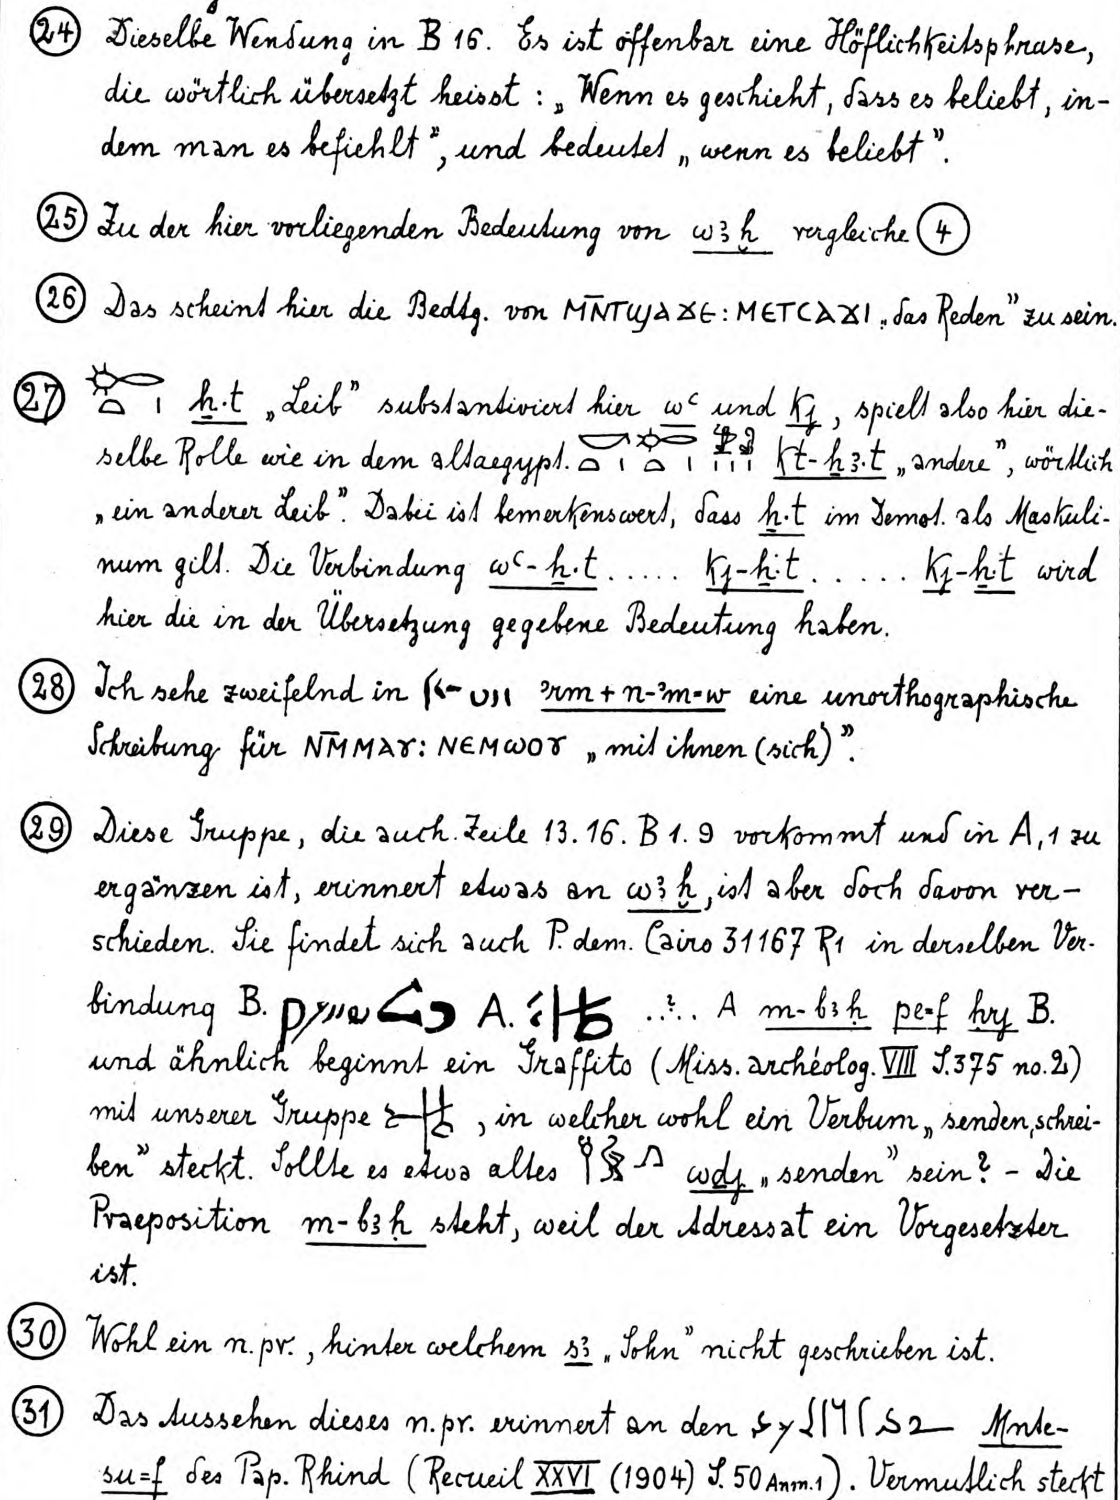 24 Dieselbe Wendung in B 16. Es ist offenbar eine Höflichkeitsphrase,
die wörtlich übersetzt heisst: „Wenn es geschieht, dass es beliebt, in-
dem man es befiehlt", und bedeutet „wenn es beliebt".
25 Zu der hier vorliegenden Bedeutung von wꜣḥ vergleiche 4
26 Das scheint hier die Bedtg. von ⲙⲛ̅ⲧϣⲁϫⲉ: ⲙⲉⲧⲥⲁϫⲓ „das Reden" zu sein.
27 ẖ·t „Leib" substantiviert hier wꜥ und kj, spielt also hier die-
selbe Rolle wie in dem altaegypt. kt-ẖꜣ·t „andere", wörtlich
„ein anderer Leib". Dabei ist bemerkenswert, dass ẖ·t im Demot. als Maskuli-
num gilt. Die Verbindung wꜥ-ẖ·t ..... kj-ẖ·t ...... kj-ẖ·t wird
hier die in der Übersetzung gegebene Bedeutung haben.
28 Ich sehe zweifelnd in ꜣrm + n-ꜣm=w eine unorthographische
Schreibung für ⲛⲙ̅ⲙⲁⲩ: ⲛⲉⲙⲱⲟⲩ „mit ihnen (sich)".
29 Diese Gruppe, die auch Zeile 13. 16. B 1. 9 vorkommt und in A, 1 zu
ergänzen ist, erinnert etwas an wꜣḥ, ist aber doch davon ver-
schieden. Sie findet sich auch P. dem. Cairo 31167 R1 in derselben Ver-
bindung B. A. ..?.. A m-bꜣḥ pe=f ḥrj B.
und ähnlich beginnt ein Graffito (Miss. archéolog. VIII S. 375 no. 2)
mit unserer Gruppe , in welcher wohl ein Verbum „senden, schrei-
ben" steckt. Sollte es etwa altes wdj „senden" sein? - Die
Praeposition m-bꜣḥ steht, weil der Adressat ein Vorgesetzter
ist.
30 Wohl ein n. pr., hinter welchem sꜣ „Sohn" nicht geschrieben ist.
31 Das Aussehen dieses n. pr. erinnert an den Mnte-
su=f des Pap. Rhind (Recueil XXVI (1904) S. 50 Anm. 1). Vermutlich steckt